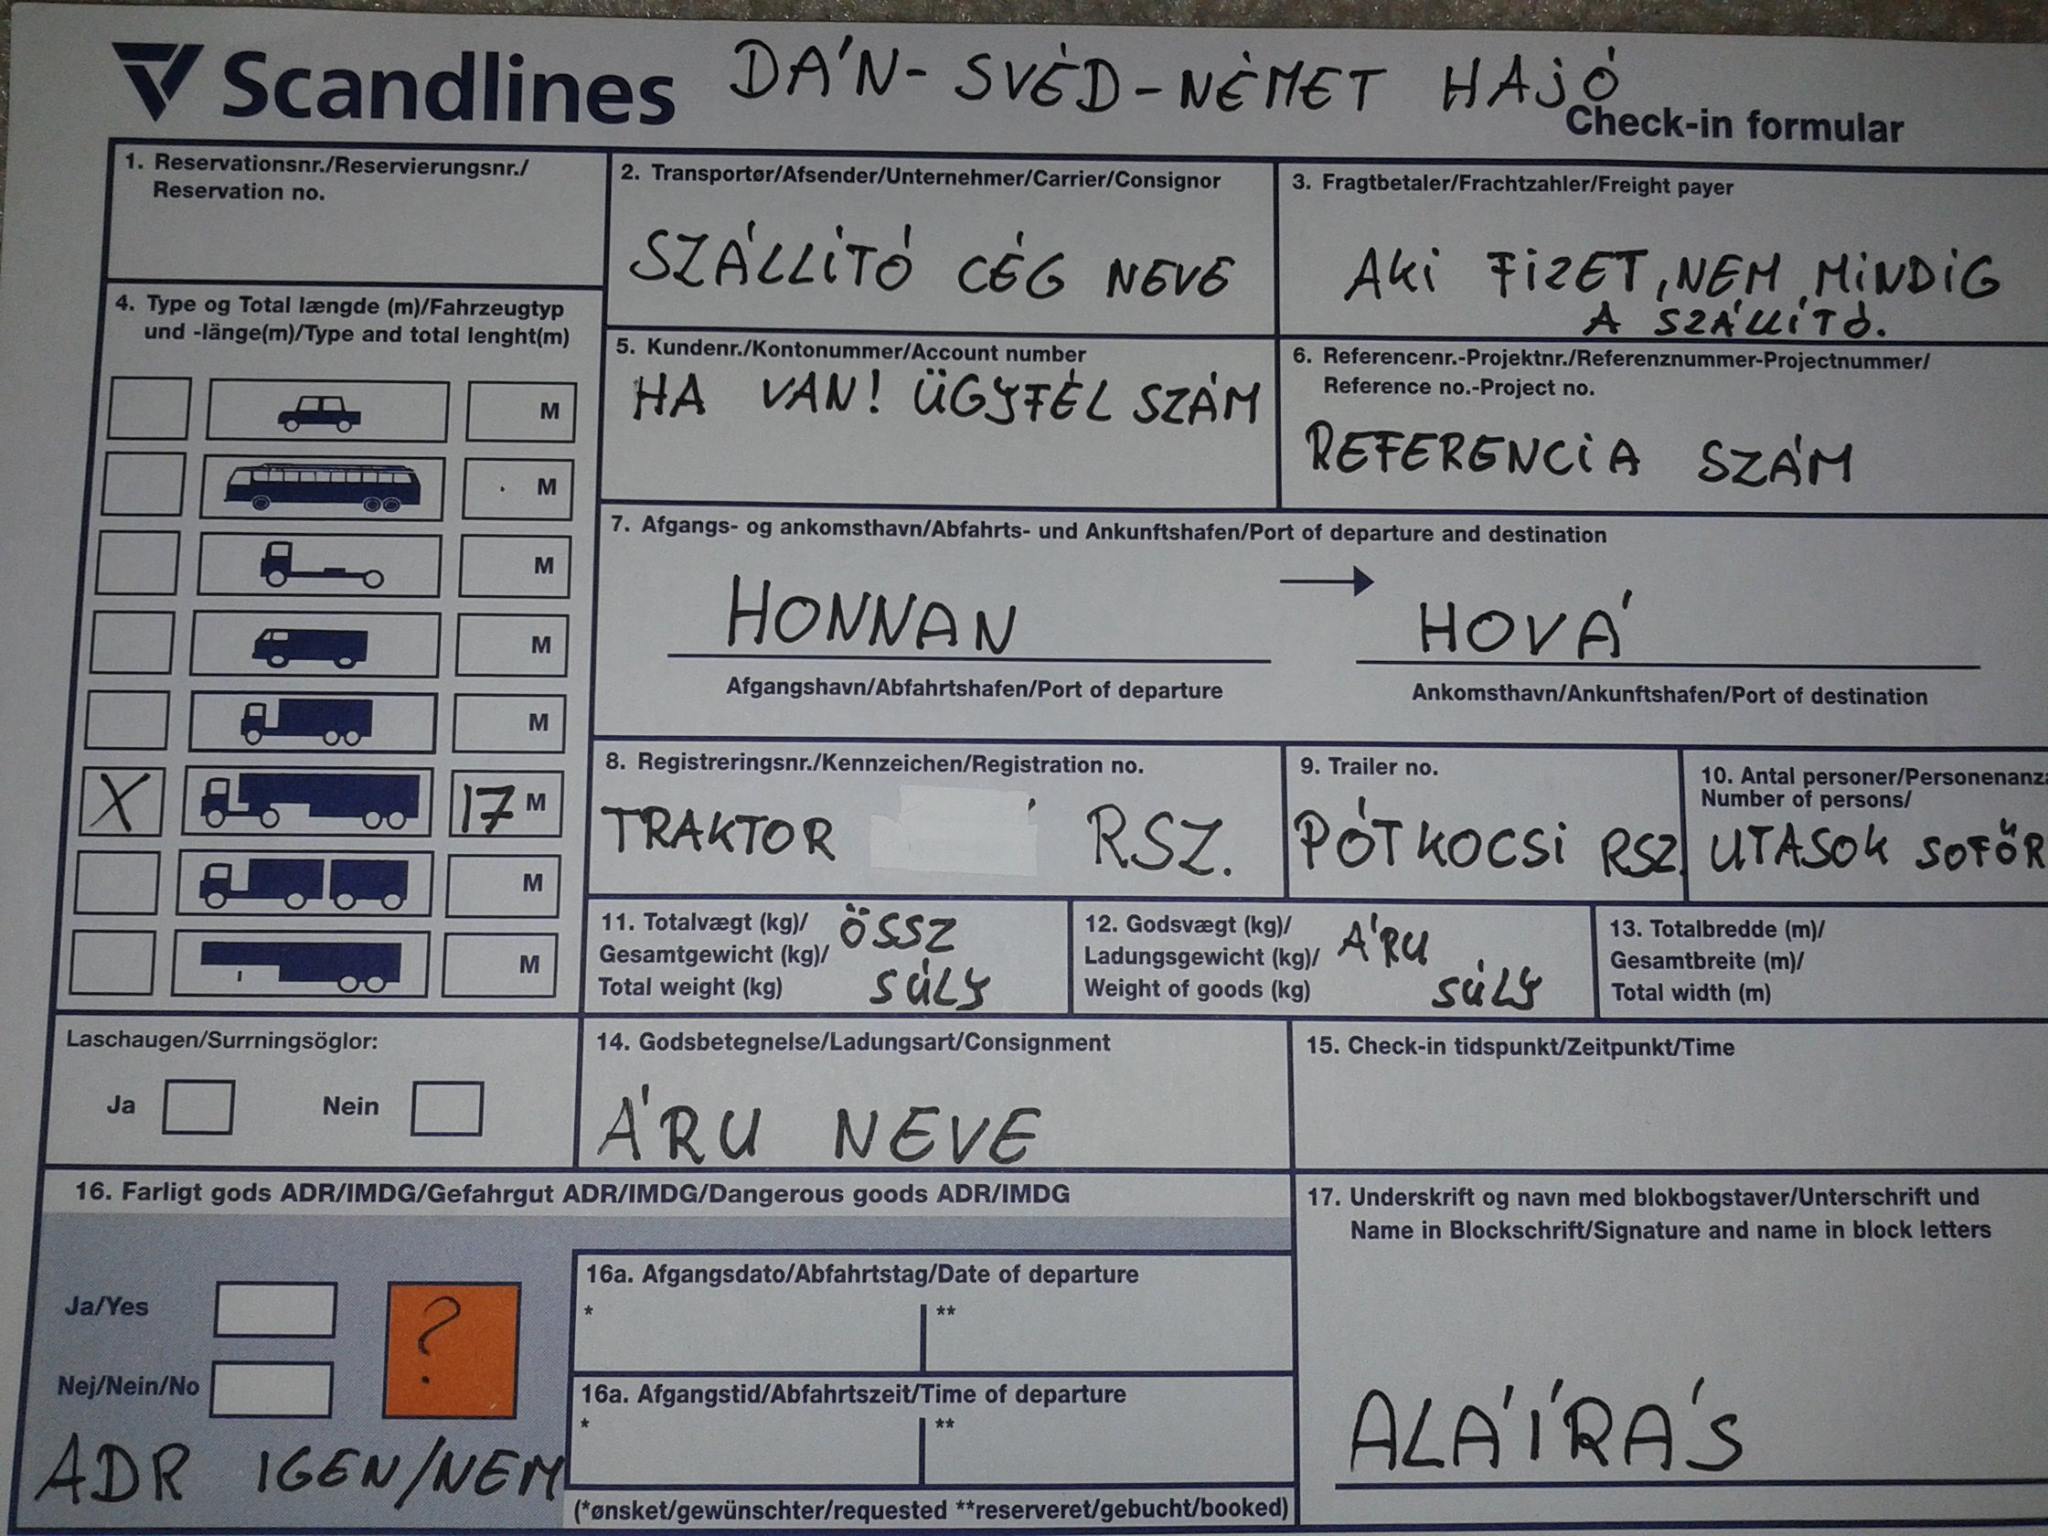 Scandlines
DÁN-SVÉD-NÉMET HAJÓ
Check-in formular
1. Reservationsnr./Reservierungsnr./
Reservation no.
2. Transportør/Afsender/Unternehmer/Carrier/Consignor
SZÁLLÍTÓ CÉG NEVE
3. Fragtbetaler/Frachtzahler/Freight payer
AKI FIZET, NEM MINDIG
A SZÁLLÍTÓ.
4. Type og Total længde (m)/Fahrzeugtyp
und -länge(m)/Type and total lenght(m)
M
M
M
M
M
X 17 M
M
M
5. Kundenr./Kontonummer/Account number
HA VAN! ÜGYFÉL SZÁM
6. Referencenr.-Projektnr./Referenznummer-Projectnummer/
Reference no.-Project no.
REFERENCIA SZÁM
7. Afgangs- og ankomsthavn/Abfahrts- und Ankunftshafen/Port of departure and destination
HONNAN → HOVÁ
Afgangshavn/Abfahrtshafen/Port of departure
Ankomsthavn/Ankunftshafen/Port of destination
8. Registreringsnr./Kennzeichen/Registration no.
TRAKTOR RSZ.
9. Trailer no.
PÓTKOCSI RSZ.
10. Antal personer/Personenanza
Number of persons/
UTASOK SOFŐR
11. Totalvægt (kg)/
Gesamtgewicht (kg)/
Total weight (kg)
ÖSSZ
SÚLY
12. Godsvægt (kg)/
Ladungsgewicht (kg)/
Weight of goods (kg)
ÁRU
SÚLY
13. Totalbredde (m)/
Gesamtbreite (m)/
Total width (m)
Laschaugen/Surrningsöglor:
Ja Nein
14. Godsbetegnelse/Ladungsart/Consignment
ÁRU NEVE
15. Check-in tidspunkt/Zeitpunkt/Time
16. Farligt gods ADR/IMDG/Gefahrgut ADR/IMDG/Dangerous goods ADR/IMDG
Ja/Yes
?
Nej/Nein/No
ADR IGEN/NEM
16a. Afgangsdato/Abfahrtstag/Date of departure
* **
16a. Afgangstid/Abfahrtszeit/Time of departure
* **
(*ønsket/gewünschter/requested **reserveret/gebucht/booked)
17. Underskrift og navn med blokbogstaver/Unterschrift und
Name in Blockschrift/Signature and name in block letters
ALÁÍRÁS